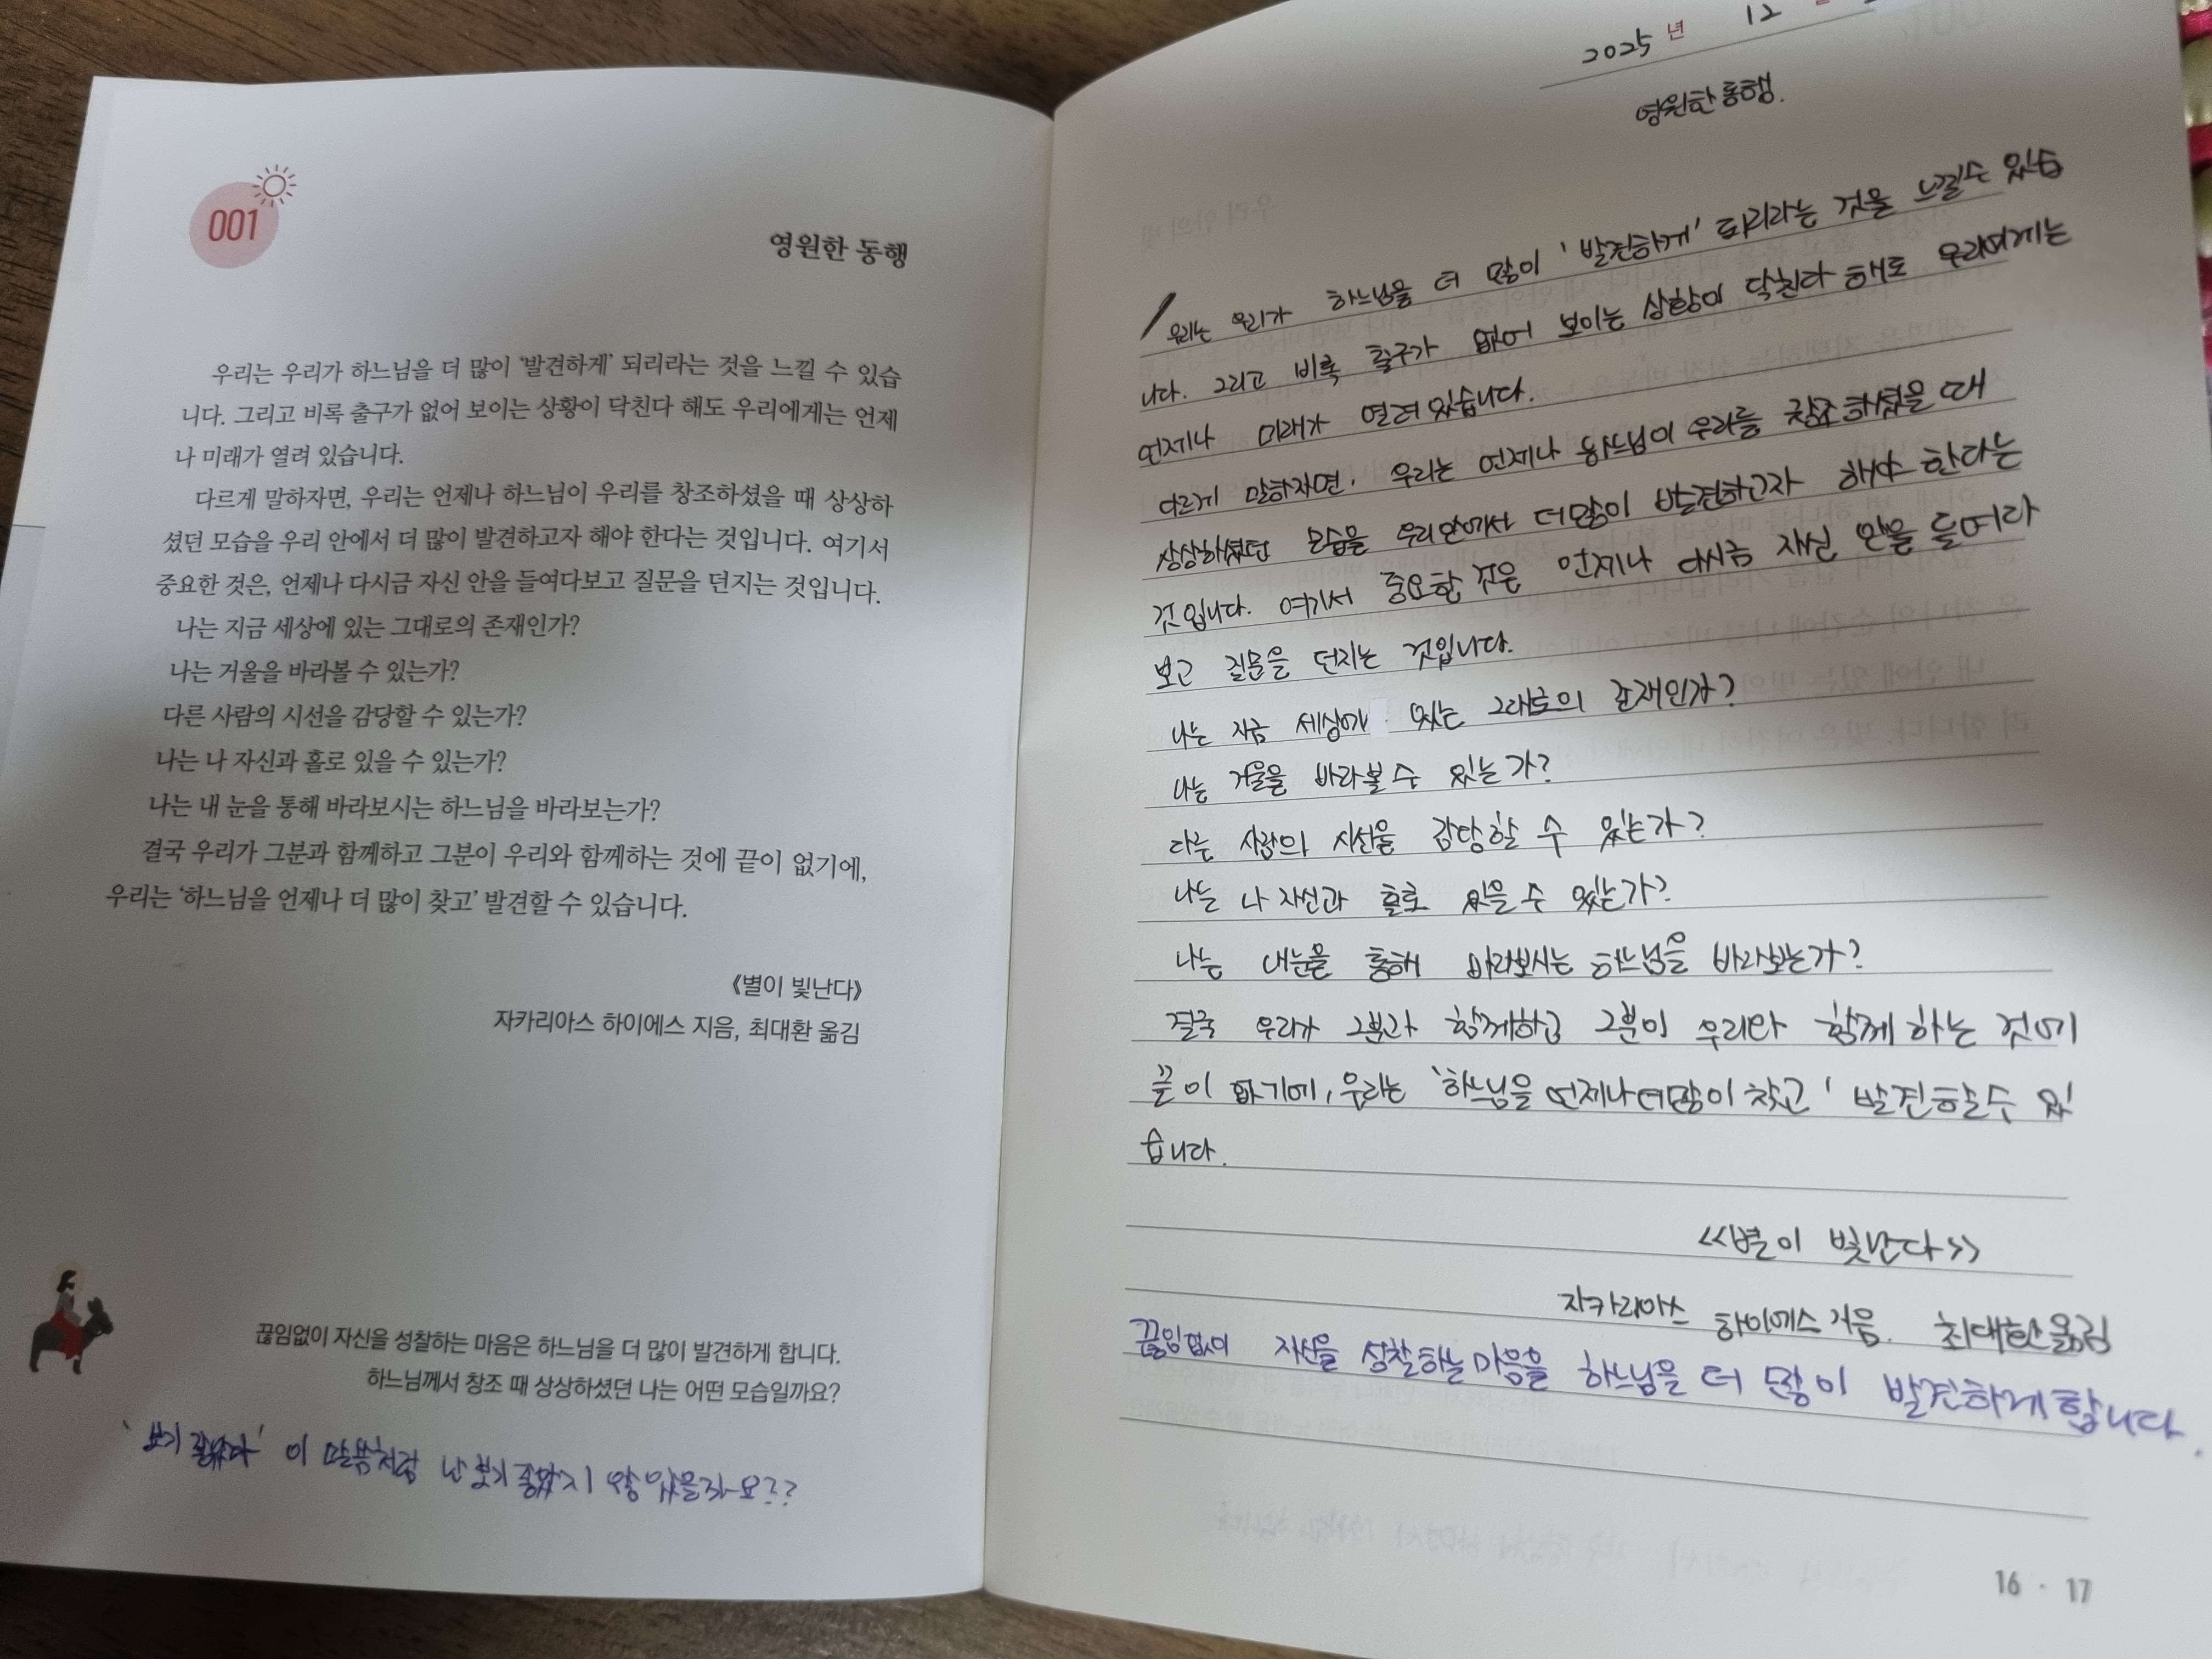 001
영원한 동행
우리는 우리가 하느님을 더 많이 ‘발견하게’ 되리라는 것을 느낄 수 있습
니다. 그리고 비록 출구가 없어 보이는 상황이 닥친다 해도 우리에게는 언제
나 미래가 열려 있습니다.
다르게 말하자면, 우리는 언제나 하느님이 우리를 창조하셨을 때 상상하
셨던 모습을 우리 안에서 더 많이 발견하고자 해야 한다는 것입니다. 여기서
중요한 것은, 언제나 다시금 자신 안을 들여다보고 질문을 던지는 것입니다.
나는 지금 세상에 있는 그대로의 존재인가?
나는 거울을 바라볼 수 있는가?
다른 사람의 시선을 감당할 수 있는가?
나는 나 자신과 홀로 있을 수 있는가?
나는 내 눈을 통해 바라보시는 하느님을 바라보는가?
결국 우리가 그분과 함께하고 그분이 우리와 함께하는 것에 끝이 없기에,
우리는 ‘하느님을 언제나 더 많이 찾고’ 발견할 수 있습니다.
《별이 빛난다》
자카리아스 하이에스 지음, 최대환 옮김
끊임없이 자신을 성찰하는 마음은 하느님을 더 많이 발견하게 합니다.
하느님께서 창조 때 상상하셨던 나는 어떤 모습일까요?
이 말씀처럼 난 보기 좋았지 않았을까요??
2025 년 12
영원한 동행.
우리는 우리가 하느님을 더 많이 '발견하게' 되리라는 것을 느낄수 있습
니다. 그리고 비록 출구가 없어 보이는 상황이 닥친다 해도 우리에게는
언제나 미래가 열려 있습니다.
다르게 말하자면, 우리는 언제나 하느님이 우리를 창조하셨을 때
상상하셨던 모습을 우리안에서 더많이 발견하고자 해야 한다는
것입니다. 여기서 중요한 것은 언제나 다시금 자신 안을 들여다
보고 질문을 던지는 것입니다.
나는 지금 세상에 있는 그대로의 존재인가?
나는 거울을 바라볼 수 있는가?
다른 사람의 시선을 감당할 수 있는가?
나는 나 자신과 홀로 있을 수 있는가?
나는 내눈을 통해 바라보시는 하느님을 바라보는가?
결국 우리가 그분과 함께하고 그분이 우리와 함께 하는 것에
끝이 없기에, 우리는 '하느님을 언제나 더많이 찾고' 발견할수 있
습니다.
<<별이 빛난다>>
자카리아스 하이에스 지음. 최대환 옮김
끊임없이 자신을 성찰하는 마음을 하느님을 더 많이 발견하게 합니다.
16 · 17